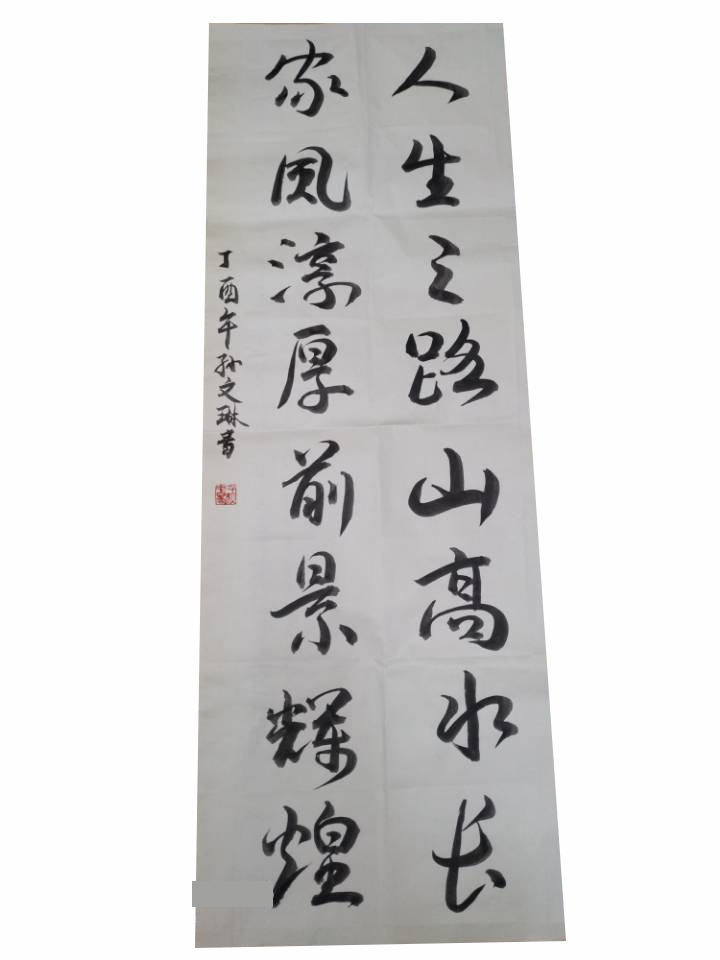 人生之路山高水长
家风淳厚前景辉煌
丁酉年孙文琳书